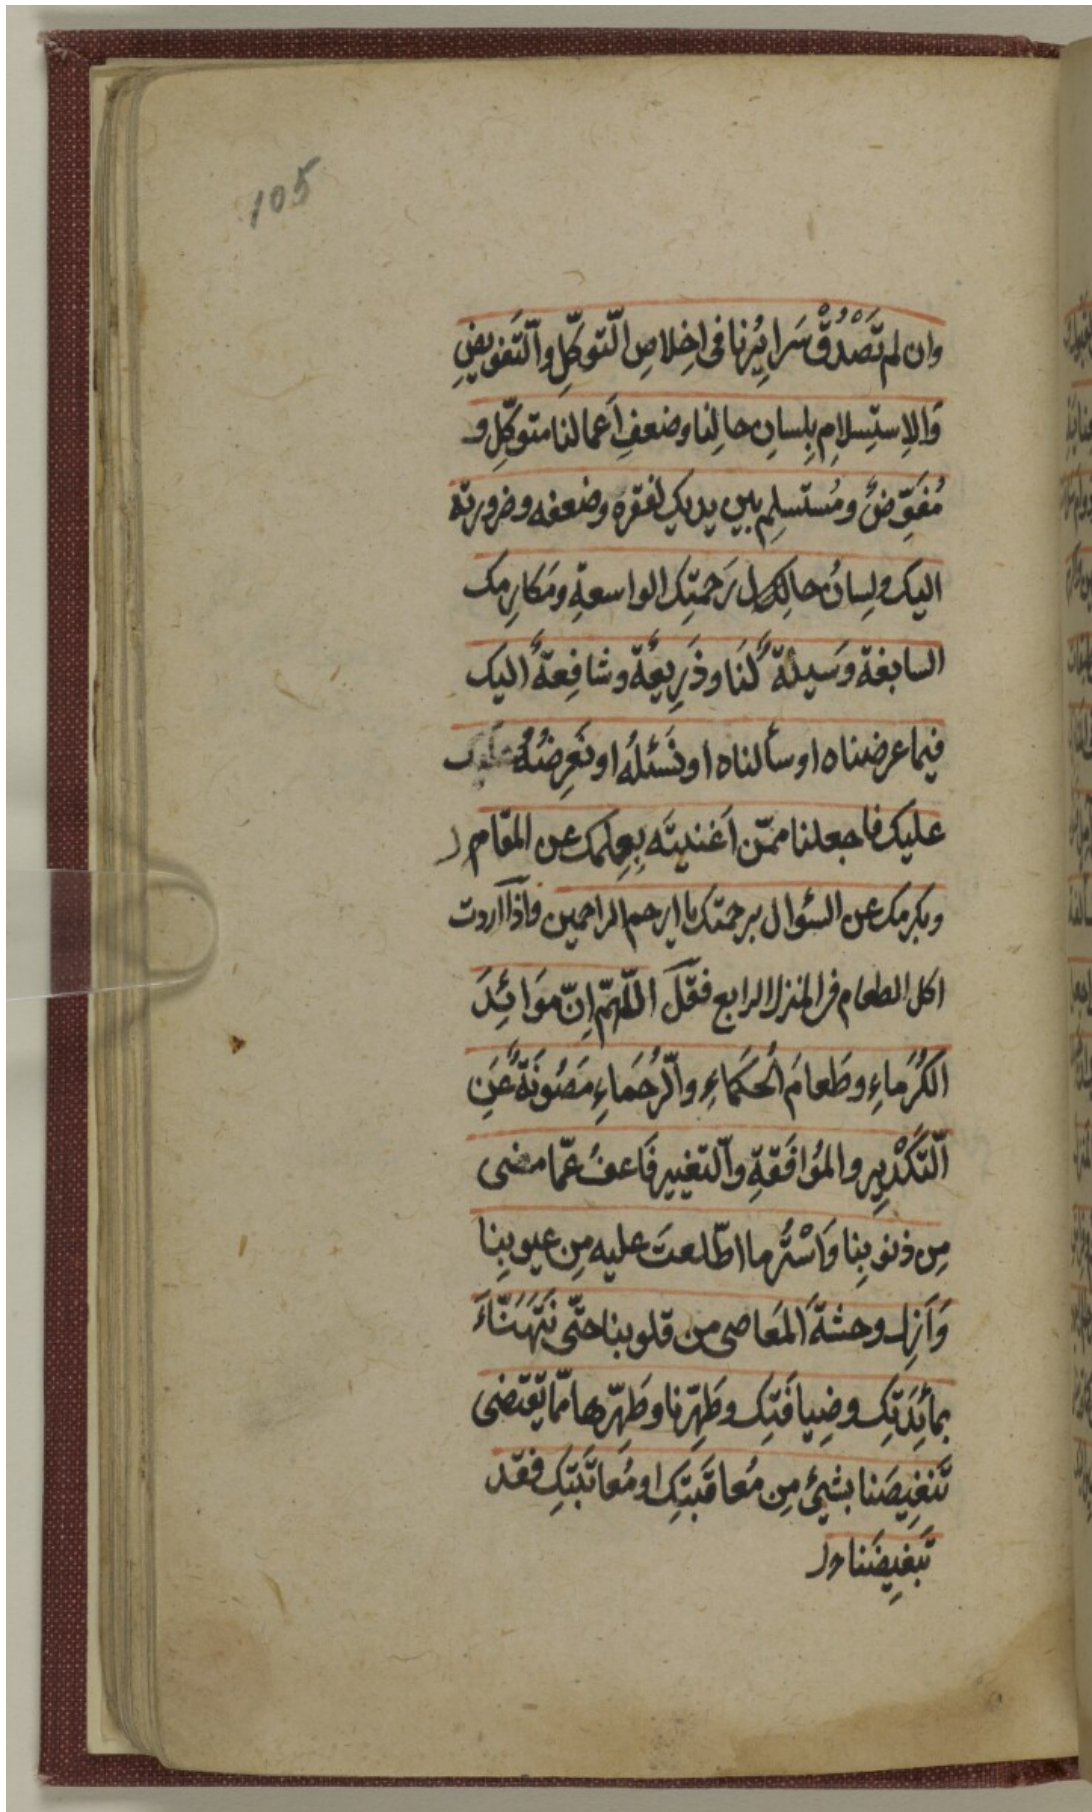 105
وان لم تَصْدُقْ سَرايِرُنا فى اِخلاصِ التّوكّلِ والتّفويضِ
وَالاِستِسلامِ بِلِسانِ حالِنا وضعفِ اَعمالنا متوكّلِ و
مُفَوِّضٌ ومُستسلِم بين يديك لفقره وضعفه وضرورته
اليك ولِسانُ حالِ رَحمتِك الواسعةِ ومَكارِمك
السابغة وَسيلةً لَنَا وذَرِيعةً وشافِعةً اليك
فيما عرضناه او سألناه او نَسئلُه او نَعرِضُهُ
عليك فاجعلنا ممّن اَغنيتَه بِعِلمك عن المقام
وبكرمك عن السئوال برحمتك يا ارحم الراحمين واذا اردت
اكل الطعام فى المنزل الرابع فقل اللّهمّ اِنّ مَوَائِدَ
الكُرَماءِ وطَعامَ الحُكَماءِ والرُّحَماءِ مَصُونَةٌ عَنِ
التَّكْدِيرِ والمُوافَقَةِ والتّغيير فَاعفُ عمّا مضى
مِن ذنوبِنا وَاسْتُر ما اطّلعتَ عليه مِن عيوبِنا
وَاَزِل وحشةَ المَعَاصى من قلوبنا حتّى نَتَهَنّاءَ
بمائِدَتِك وضِيافَتِك وطَهِّرنا وطَهِّرها ممّا يَقتضى
تَنغِيصَنا بشيئ مِن مُعاقَبتِك او مُعاتَبَتِك فقد
تَبغِيضَنا